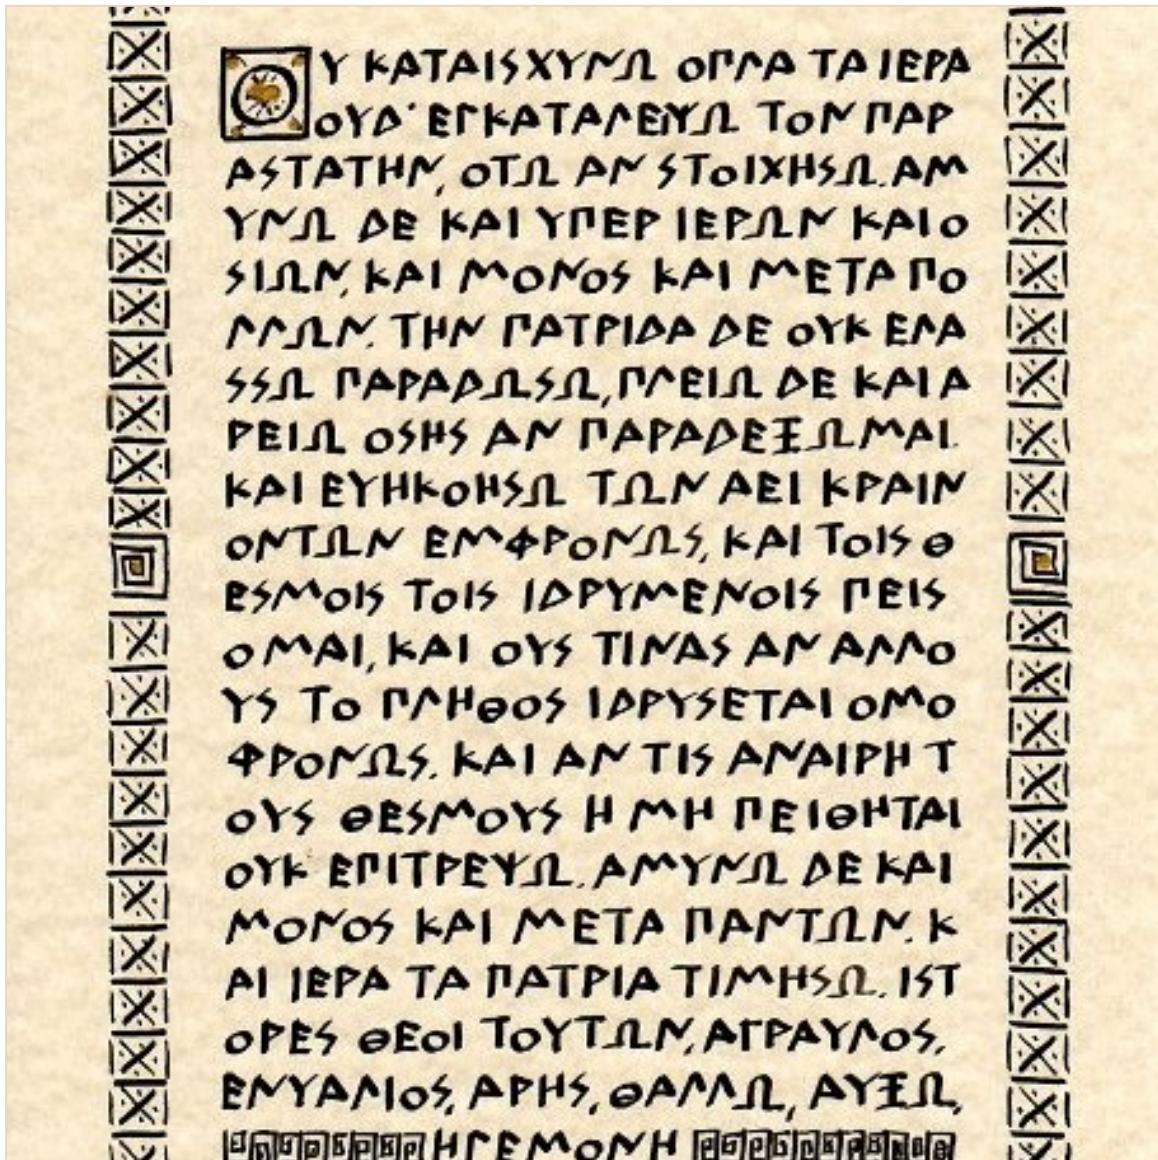 ΟΥ ΚΑΤΑΙΣΧΥΝΩ ΟΠΛΑ ΤΑ ΙΕΡΑ
ΟΥΔ' ΕΓΚΑΤΑΛΕΙΨΩ ΤΟΝ ΠΑΡ
ΑΣΤΑΤΗΝ, ΟΤΩ ΑΝ ΣΤΟΙΧΗΣΩ. ΑΜ
ΥΝΩ ΔΕ ΚΑΙ ΥΠΕΡ ΙΕΡΩΝ ΚΑΙ Ο
ΣΙΩΝ, ΚΑΙ ΜΟΝΟΣ ΚΑΙ ΜΕΤΑ ΠΟ
ΛΛΩΝ. ΤΗΝ ΠΑΤΡΙΔΑ ΔΕ ΟΥΚ ΕΛΑ
ΣΣΩ ΠΑΡΑΔΩΣΩ, ΠΛΕΙΩ ΔΕ ΚΑΙ Α
ΡΕΙΩ ΟΣΗΣ ΑΝ ΠΑΡΑΔΕΞΩΜΑΙ.
ΚΑΙ ΕΥΗΚΟΗΣΩ ΤΩΝ ΑΕΙ ΚΡΑΙΝ
ΟΝΤΩΝ ΕΜΦΡΟΝΩΣ, ΚΑΙ ΤΟΙΣ Θ
ΕΣΜΟΙΣ ΤΟΙΣ ΙΔΡΥΜΕΝΟΙΣ ΠΕΙΣ
ΟΜΑΙ, ΚΑΙ ΟΥΣ ΤΙΝΑΣ ΑΝ ΑΛΛΟ
ΥΣ ΤΟ ΠΛΗΘΟΣ ΙΔΡΥΣΕΤΑΙ ΟΜΟ
ΦΡΟΝΩΣ. ΚΑΙ ΑΝ ΤΙΣ ΑΝΑΙΡΗ Τ
ΟΥΣ ΘΕΣΜΟΥΣ Η ΜΗ ΠΕΙΘΗΤΑΙ
ΟΥΚ ΕΠΙΤΡΕΨΩ. ΑΜΥΝΩ ΔΕ ΚΑΙ
ΜΟΝΟΣ ΚΑΙ ΜΕΤΑ ΠΑΝΤΩΝ. Κ
ΑΙ ΙΕΡΑ ΤΑ ΠΑΤΡΙΑ ΤΙΜΗΣΩ. ΙΣΤ
ΟΡΕΣ ΘΕΟΙ ΤΟΥΤΩΝ, ΑΓΡΑΥΛΟΣ,
ΕΝΥΑΛΙΟΣ, ΑΡΗΣ, ΘΑΛΛΩ, ΑΥΞΩ,
ΗΓΕΜΟΝΗ